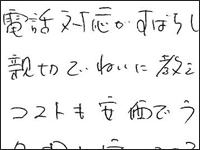 電話対応がすばらし
親切でていねいに教え
コストも安価でう